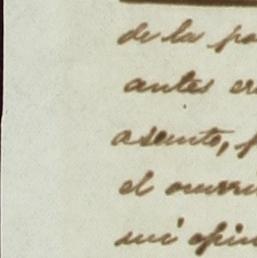 de la po
antes er
asunto, p
el ourri
mi opin